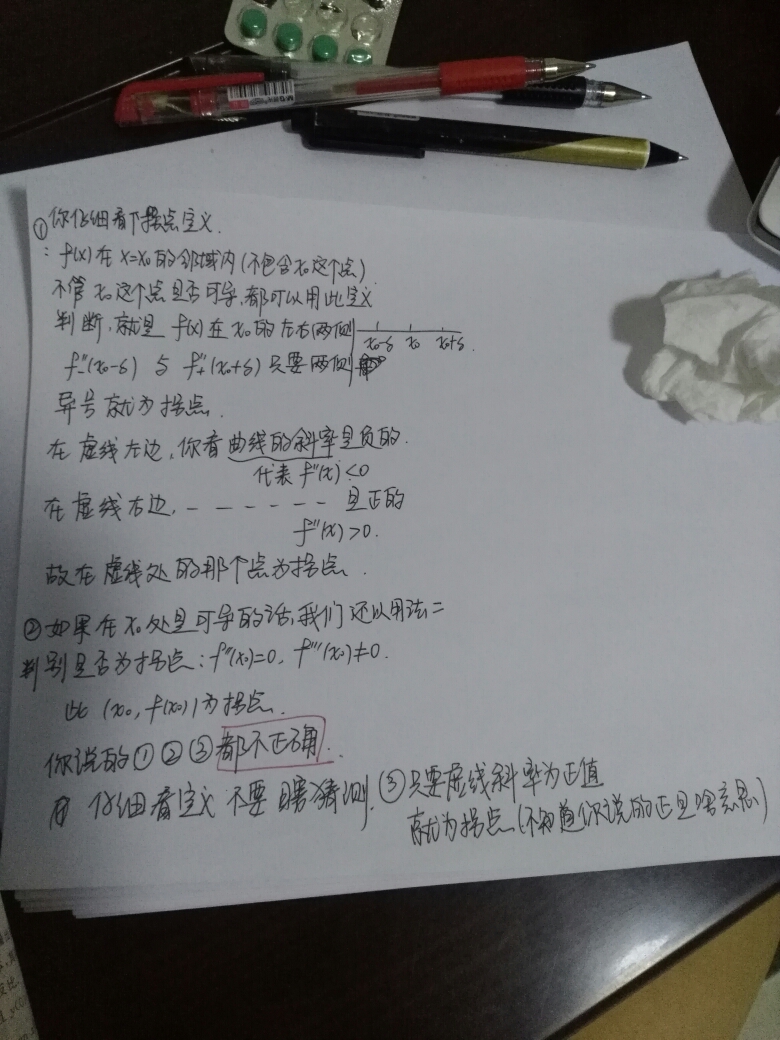 ① 你仔细看下拐点定义.
: f(x) 在 x=x₀ 的邻域内 (不包含 x₀ 这个点)
不管 x₀ 这个点是否可导, 都可以用此定义
判断, 就是 f(x) 在 x₀ 的左右两侧
x₀-δ x₀ x₀+δ
f″₋(x₀-δ) 与 f″₊(x₀+δ) 只要两侧
异号就为拐点.
在虚线左边, 你看曲线的斜率是负的.
代表 f″(x)<0
在虚线右边, - - - - - - 是正的
f″(x)>0.
故在虚线处的那个点为拐点.
② 如果在 x₀ 处是可导的话, 我们还以用法二
判别是否为拐点: f″(x₀)=0, f‴(x₀)≠0.
此 (x₀, f(x₀)) 为拐点.
你说的 ① ② ③ 都不正确.
仔细看定义 不要瞎猜测.
③ 只要虚线斜率为正值
就为拐点 (不知道你说的正是啥意思)